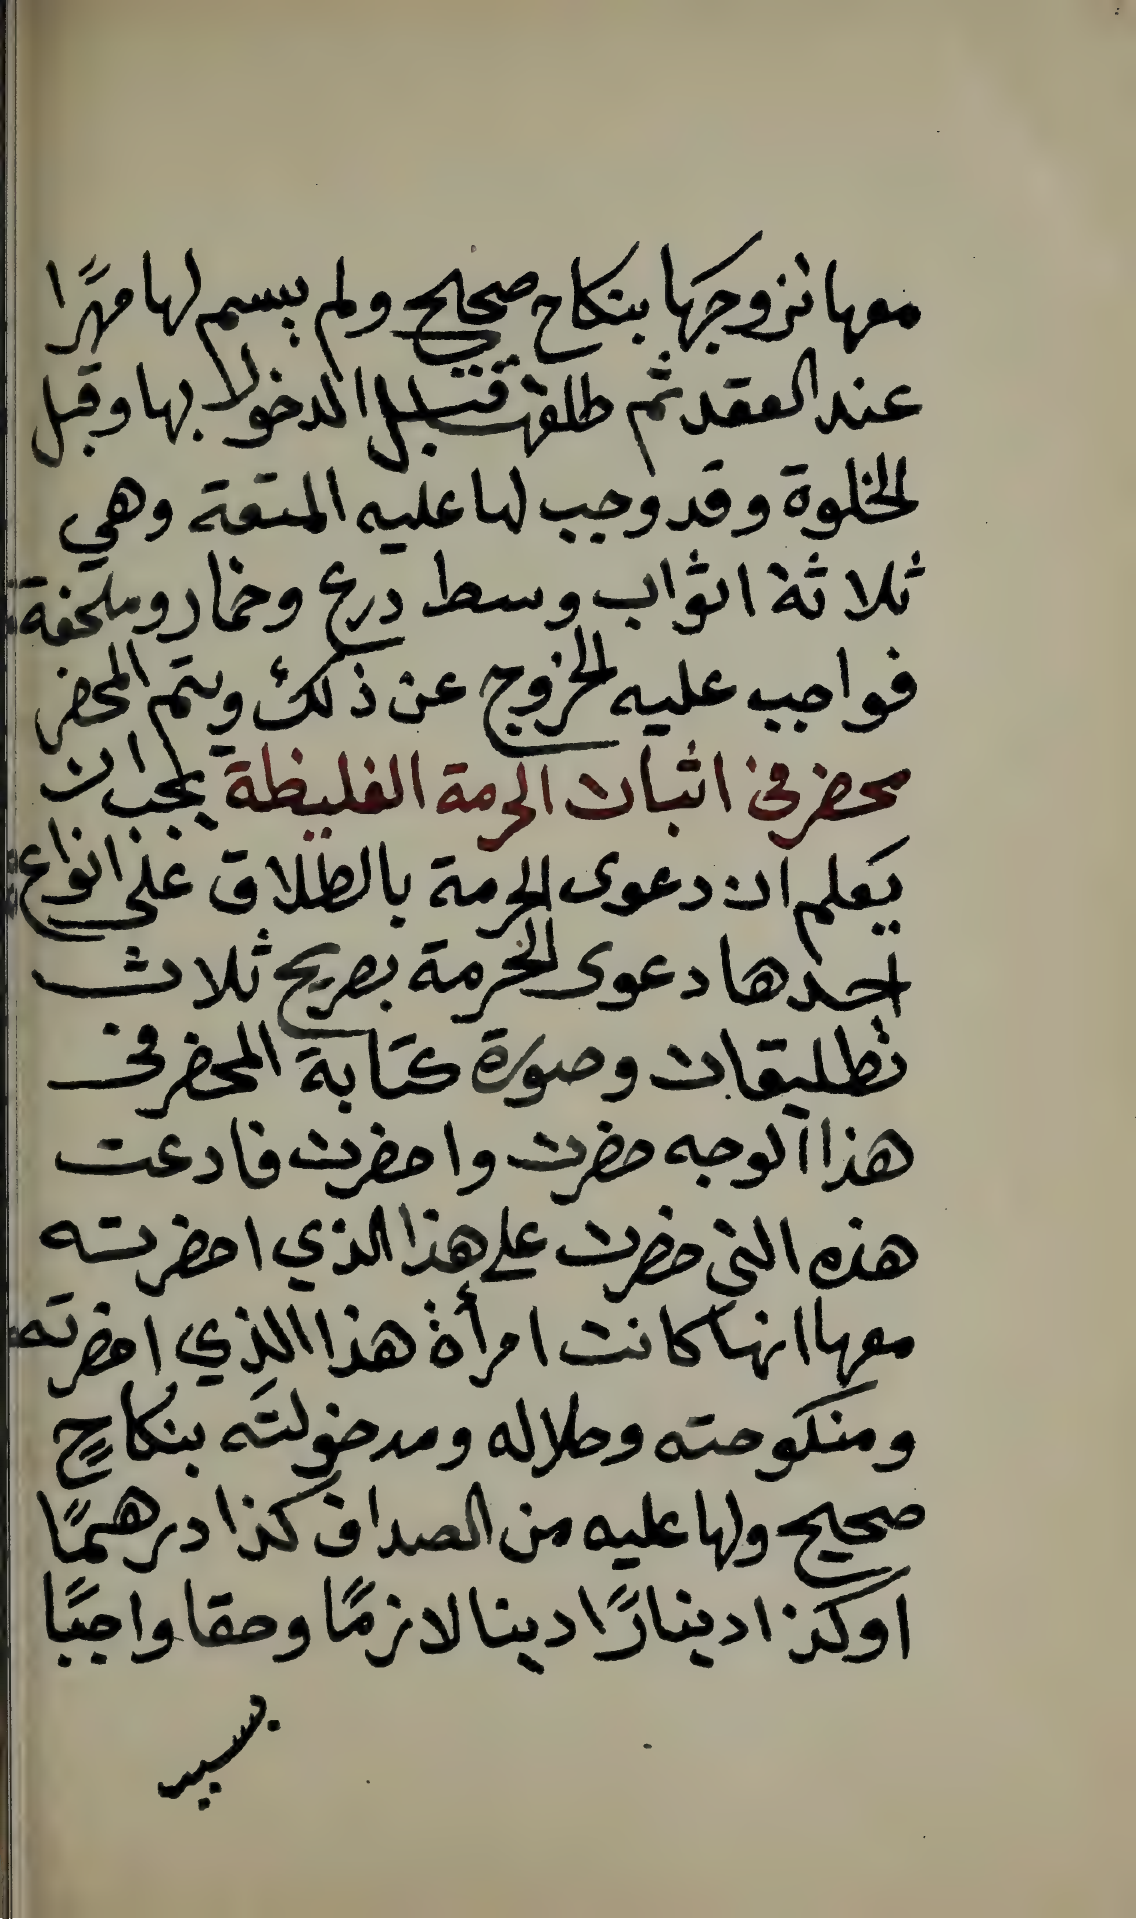 معها تزوجها بنكاح صحيح ولم يسم لها مهرًا
عند العقد ثم طلقها قبل الدخول بها وقبل
الخلوة وقد وجب لها عليه المتعة وهي
ثلاثة اثواب وسط درع وخمار وملحفة
فواجب عليه الخروج عن ذلك ويتم المحضر
محضر في اثبات الحرمة الغليظة يجب ان
يعلم ان دعوى الحرمة بالطلاق على انواع
احدها دعوى الحرمة بصريح ثلاث
تطليقات وصورة كتابة المحضر في
هذا الوجه حضرت واحضرت فادعت
هذه التي حضرت على هذا الذي احضرته
معها انها كانت امرأة هذا الذي احضرته
ومنكوحته وحلاله ومدخولته بنكاحٍ
صحيح ولها عليه من الصداق كذا درهمًا
او كذا دينارًا دينا لازمًا وحقا واجبًا
بسبب